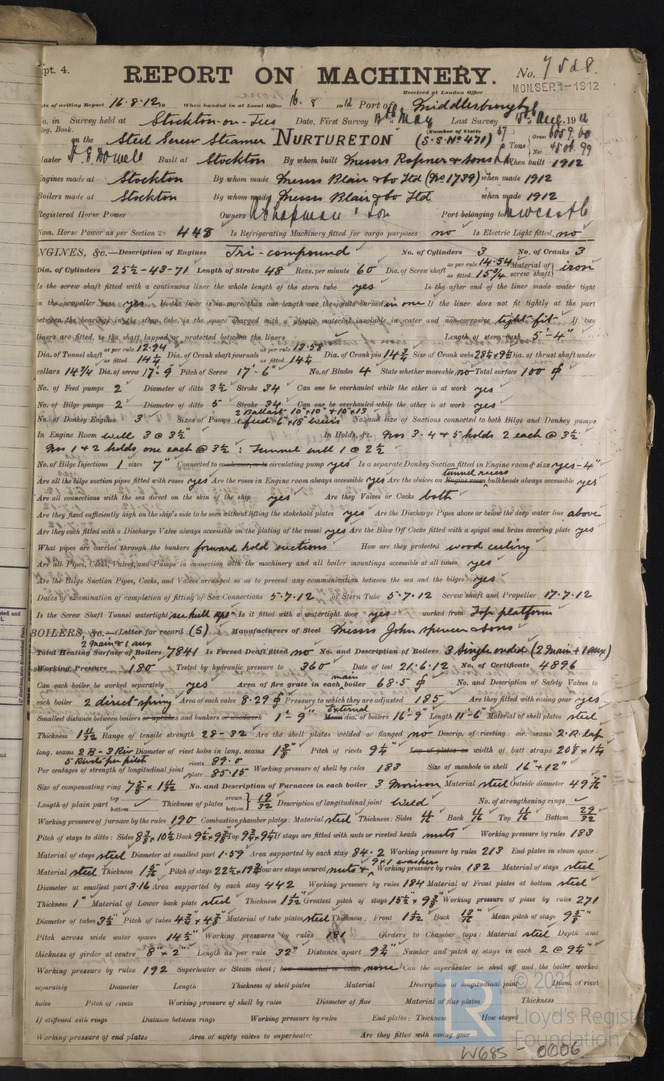 pt. 4.
REPORT ON MACHINERY.
No. 7528.
Received at London Office
MON. SEP. 2-1912
te of writing Report 16.8.12 When handed in at Local Office 16.8.1912 Port of Middlesbrough
No. in Survey held at Stockton-on-Tees Date, First Survey May Last Survey Aug. 1912
Reg. Book. (Number of Visits
on the Steel Screw Steamer NURTURETON (S.S. No 471) Tons Gross Net
Master Built at Stockton By whom built Messrs Ropner & Sons Ld When built 1912
Engines made at Stockton By whom made Messrs Blair & Co Ltd (No 1739) when made 1912
Boilers made at Stockton By whom made Messrs Blair & Co Ltd when made 1912
Registered Horse Power Owners R. Chapman & Son Port belonging to Newcastle
Nom. Horse Power as per Section 28 448 Is Refrigerating Machinery fitted for cargo purposes no Is Electric Light fitted no
ENGINES, &c.—Description of Engines Tri-compound No. of Cylinders 3 No. of Cranks 3
Dia. of Cylinders 25½-43-71 Length of Stroke 48 Revs. per minute 60 Dia. of Screw shaft as per rule 14.54 as fitted 15¾ Material of screw shaft iron
Is the screw shaft fitted with a continuous liner the whole length of the stern tube yes Is the after end of the liner made water tight
in the propeller boss yes If the liner is in more than one length are the joints burned in one If the liner does not fit tightly at the part
between the bearings in the stern tube, is the space charged with a plastic material insoluble in water and non-corrosive tight fit If two
liners are fitted, is the shaft lapped or protected between the liners Length of stern bush 5'-4"
Dia. of Tunnel shaft as per rule 12.94 as fitted 14¼ Dia. of Crank shaft journals as per rule 13.58 as fitted 14½ Dia. of Crank pin 14¾ Size of Crank webs Dia. of thrust shaft under
collars 14¾ Dia. of screw 17'-9" Pitch of Screw 17'-6" No. of Blades 4 State whether moveable no Total surface 100
No. of Feed pumps 2 Diameter of ditto 3½ Stroke 34 Can one be overhauled while the other is at work yes
No. of Bilge pumps 2 Diameter of ditto 5 Stroke 34 Can one be overhauled while the other is at work yes
No. of Donkey Engines 3 Sizes of Pumps 2 Ballast 10"×10" & 10×13 No. and size of Suctions connected to both Bilge and Donkey pumps
In Engine Room well 3 @ 3½" In Holds, &c. Nos 3.4 & 5 holds 2 each @ 3½
Nos 1 & 2 holds one each @ 3½ : Tunnel well 1 @ 2½
No. of Bilge Injections 1 sizes 7" Connected to condenser, or to circulating pump yes Is a separate Donkey Suction fitted in Engine room & size yes-4"
Are all the bilge suction pipes fitted with roses yes Are the roses in Engine room always accessible yes Are the sluices on Engine room tunnel recess bulkheads always accessible yes
Are all connections with the sea direct on the skin of the ship yes Are they Valves or Cocks both
Are they fixed sufficiently high on the ship's side to be seen without lifting the stokehold plates yes Are the Discharge Pipes above or below the deep water line above
Are they each fitted with a Discharge Valve always accessible on the plating of the vessel yes Are the Blow Off Cocks fitted with a spigot and brass covering plate yes
What pipes are carried through the bunkers forward hold suctions How are they protected wood ceiling
Are all Pipes, Cocks, Valves, and Pumps in connection with the machinery and all boiler mountings accessible at all times yes
Are the Bilge Suction Pipes, Cocks, and Valves arranged so as to prevent any communication between the sea and the bilges yes
Dates of examination of completion of fitting of Sea Connections 5.7.12 of Stern Tube 5.7.12 Screw shaft and Propeller 17.7.12
Is the Screw Shaft Tunnel watertight see hull rpt Is it fitted with a watertight door yes worked from Top platform
BOILERS, &c.—(Letter for record (S) Manufacturers of Steel Messrs John Spencer & Sons
2 main & 1 aux
Total Heating Surface of Boilers 7841 Is Forced Draft fitted no No. and Description of Boilers 3 Single ended (2 Main & 1 aux)
Working Pressure 180 Tested by hydraulic pressure to 360 Date of test 21.6.12 No. of Certificate 4896
Can each boiler be worked separately yes Area of fire grate in each main boiler 68.5 No. and Description of Safety Valves to
each boiler 2 direct spring Area of each valve 8.29 Pressure to which they are adjusted 185 Are they fitted with easing gear yes
Smallest distance between boilers or uptakes and bunkers or woodwork 1'-9" External Mean dia. of boilers 16'-9" Length 11'-6" Material of shell plates steel
Thickness 1 11/32 Range of tensile strength 28-32 Are the shell plates welded or flanged no Descrip. of riveting: cir. seams 2.R.lap
long. seams 2 B-3 Riv Diameter of rivet holes in long. seams 1⅜ Pitch of rivets 9¼" Lap of plates or width of butt straps
5 Rivets per pitch
Per centages of strength of longitudinal joint rivets 89.0 plate 85.15 Working pressure of shell by rules 183 Size of manhole in shell 16"×12"
Size of compensating ring No. and Description of Furnaces in each boiler 3 Morison Material steel Outside diameter
Length of plain part top bottom Thickness of plates crown bottom 19/32 Description of longitudinal joint weld No. of strengthening rings
Working pressure of furnace by the rules 190 Combustion chamber plates: Material steel Thickness: Sides Back Top Bottom
Pitch of stays to ditto: Sides Back Top If stays are fitted with nuts or riveted heads nuts Working pressure by rules 183
Material of stays steel Diameter at smallest part 1.59 Area supported by each stay 84.2 Working pressure by rules 213 End plates in steam space:
Material steel Thickness Pitch of stays How are stays secured nuts & washers Working pressure by rules 182 Material of stays steel
Diameter at smallest part 3.16 Area supported by each stay 442 Working pressure by rules 184 Material of Front plates at bottom steel
Thickness 1" Material of Lower back plate steel Thickness Greatest pitch of stays Working pressure of plate by rules 271
Diameter of tubes 3½" Pitch of tubes Material of tube plates steel Thickness: Front Back Mean pitch of stays
Pitch across wide water spaces 14½" Working pressures by rules 181 Girders to Chamber tops: Material steel Depth and
thickness of girder at centre 8"×2" Length as per rule 32" Distance apart 9¾" Number and pitch of stays in each 2 @ 9¼"
Working pressure by rules 192 Superheater or Steam chest; how connected to boiler none Can the superheater be shut off and the boiler worked
separately Diameter Length Thickness of shell plates Material Description of longitudinal joint Diam. of rivet
holes Pitch of rivets Working pressure of shell by rules Diameter of flue Material of flue plates Thickness
If stiffened with rings Distance between rings Working pressure by rules End plates: Thickness How stayed
Working pressure of end plates Area of safety valves to superheater Are they fitted with easing gear
© 2021
Lloyd's Register
Foundation
W685 - 0006